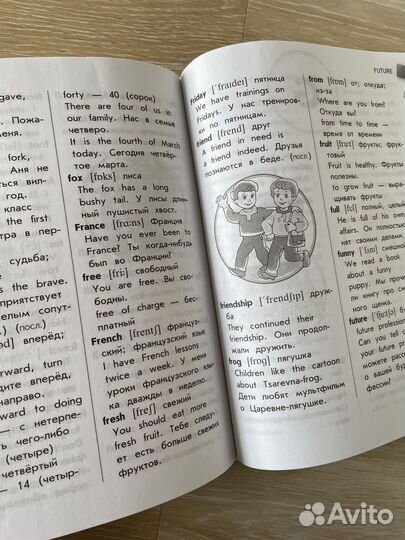 gave,
Пожа-
меня.
fork,
Аня не
ться вил-
год.
класс
the first
тра в пер-
судьба;
s the brave.
репятствует
елым сопут-
(посл.)
od] вперёд;
orward, turn
дите вперёд,
направо.
ward to doing
— с нетерпе-
ть чего-либо
(четыре)
четвёртый
— 14 (четыр-
forty — 40 (сорок)
There are four of us in
our family. Нас в семье
четверо.
It is the fourth of March
today. Сегодня четвёр-
тое марта.
fox [fɒks] лиса
The fox has a long
bushy tail. У лисы длин-
ный пушистый хвост.
France [frɑːns] Франция
Have you ever been to
France? Ты когда-нибудь
был во Франции?
free [friː] свободный
You are free. Вы сво-
бодны.
free of charge — бес-
платный
French [frentʃ] француз-
ский; французский язык
I have French lessons
twice a week. У меня
уроки французского язы-
ка дважды в неделю.
fresh [freʃ] свежий
You should eat more
fresh fruit. Тебе следу-
ет есть больше свежих
фруктов.
FUTURE
Friday [ˈfraɪdeɪ] пятница
We have trainings on
Fridays. У нас трениров-
ки по пятницам.
friend [frend] друг
A friend in need is
a friend indeed. Друзья
познаются в беде. (посл.)
friendship [ˈfrendʃɪp] друж-
ба
They continued their
friendship. Они продол-
жали дружить.
frog [frɒg] лягушка
Children like the cartoon
about Tsarevna-frog.
Дети любят мультфильм
о Царевне-лягушке.
from [frɒm] от; откуда;
из-за
Where are you from?
Откуда вы?
from time to time —
время от времени
fruit [fruːt] фрукты; фрук-
товый
Fruit is healthy. Фрукты
полезны.
to grow fruit — выра-
щивать фрукты
full [fʊl] полный, целый
He is full of his own
affairs. Он полностью
нят своими делами.
funny
We read a book
about a funny
puppy. Мы прочи
ли книгу про сме
ного щенка.
future
future profession
Can you tell
your future p
о вашей буд
фессии?
Avito